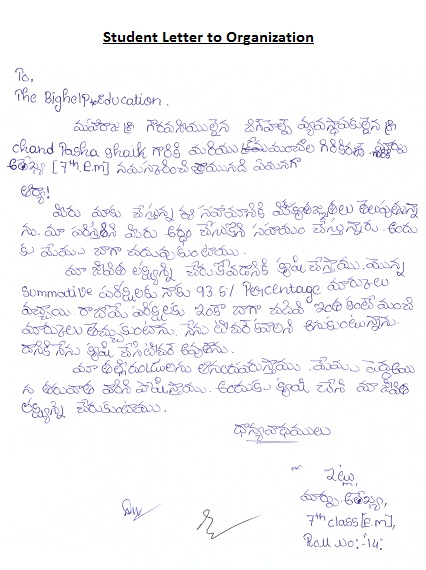 Student Letter to Organization
To,
The Bighelp for Education.
మహారాజ శ్రీ గౌరవనీయులైన బిగ్‌హెల్ప్ వ్యవస్థాపకులైన శ్రీ
chand Pasha shaik గారికి మరియు
[7th E.m] నమస్కరించి వ్రాయునది ఏమనగా
ఆర్యా!
మీరు మాకు చేస్తున్న ఈ సహాయానికి
ను. మా పరిస్థితిని మీరు అర్థం చేసుకొని సహాయం చేస్తున్నారు. అందు
కు మేము బాగా చదువుకుంటాము.
మా జీవిత లక్ష్యాన్ని చేరుకోవడానికి కృషి చేస్తాము. మొన్న
Summative పరీక్షలకు నాకు 93.5% Percentage మార్కులు
వచ్చాయి రాబోయే పరీక్షలకు ఇంకా బాగా చదివి ఇంత కంటే మంచి
మార్కులు తెచ్చుకుంటాను. నేను టీచర్ కావాలని అనుకుంటున్నాను.
దానికి నేను కృషి చేసి టీచర్ అవుతాను.
మా తల్లిదండ్రులను ఆనందపరుస్తాము. మేము పెద్దఅయి
న తరువాత వారిని పోషిస్తాము. అందుకు కృషి చేసి మా జీవిత
లక్ష్యాన్ని చేరుకుంటాము.
ధాన్యవాధములు
ఇట్లు,
7th class [E.m],
Roll No:-14.